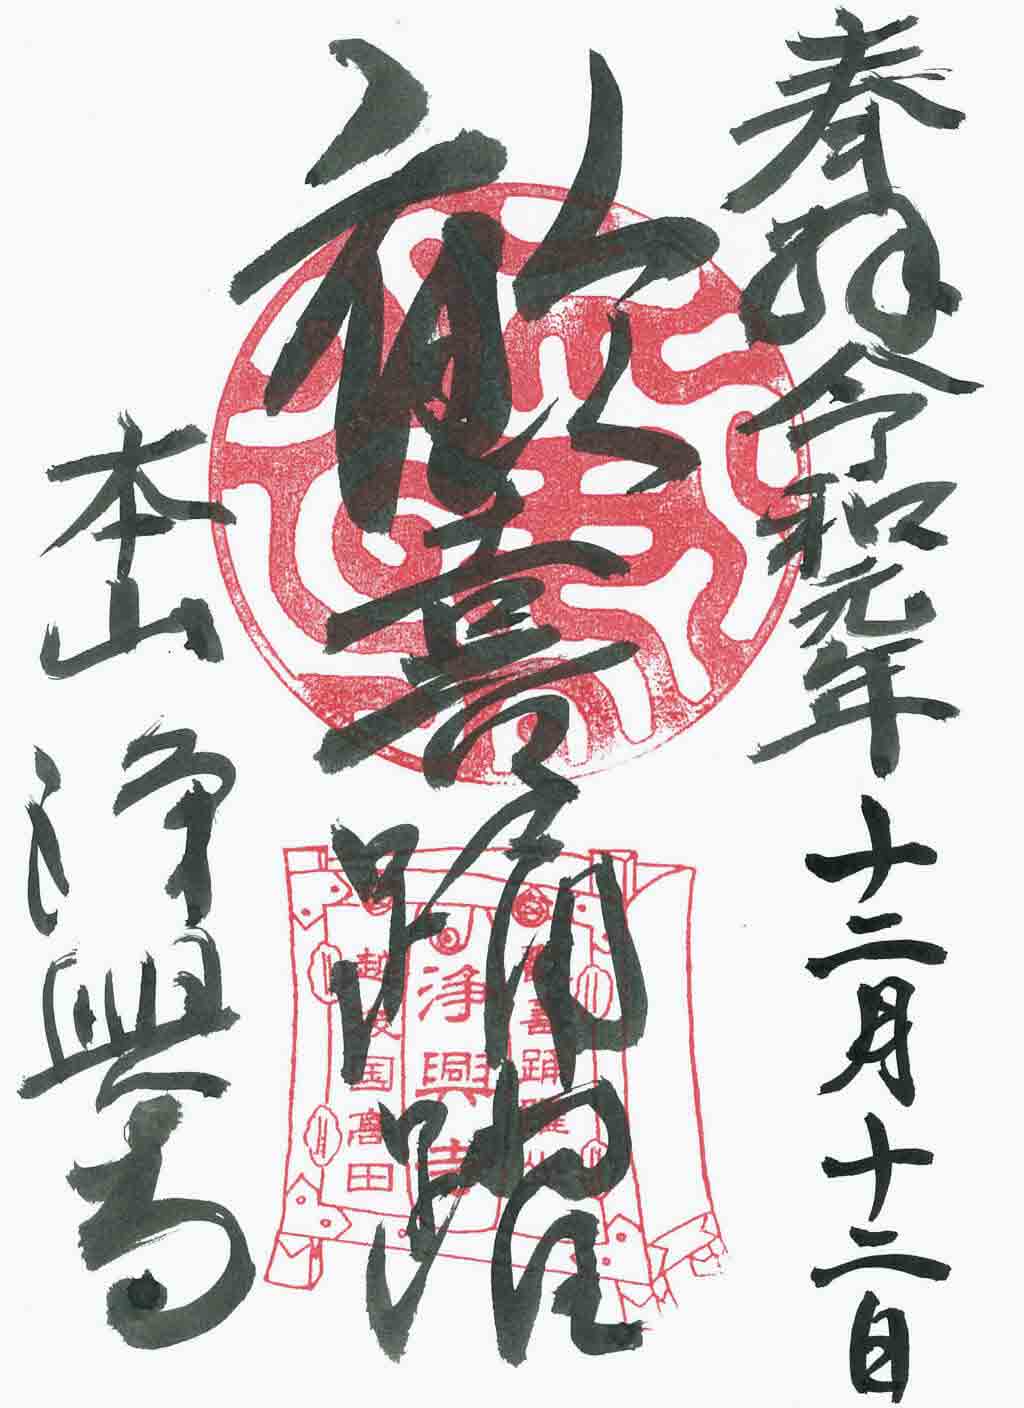 奉拝 令和元年 十二月十二日
歓喜踊躍
本山 浄興寺
歓喜踊躍山
浄興寺
越後国高田